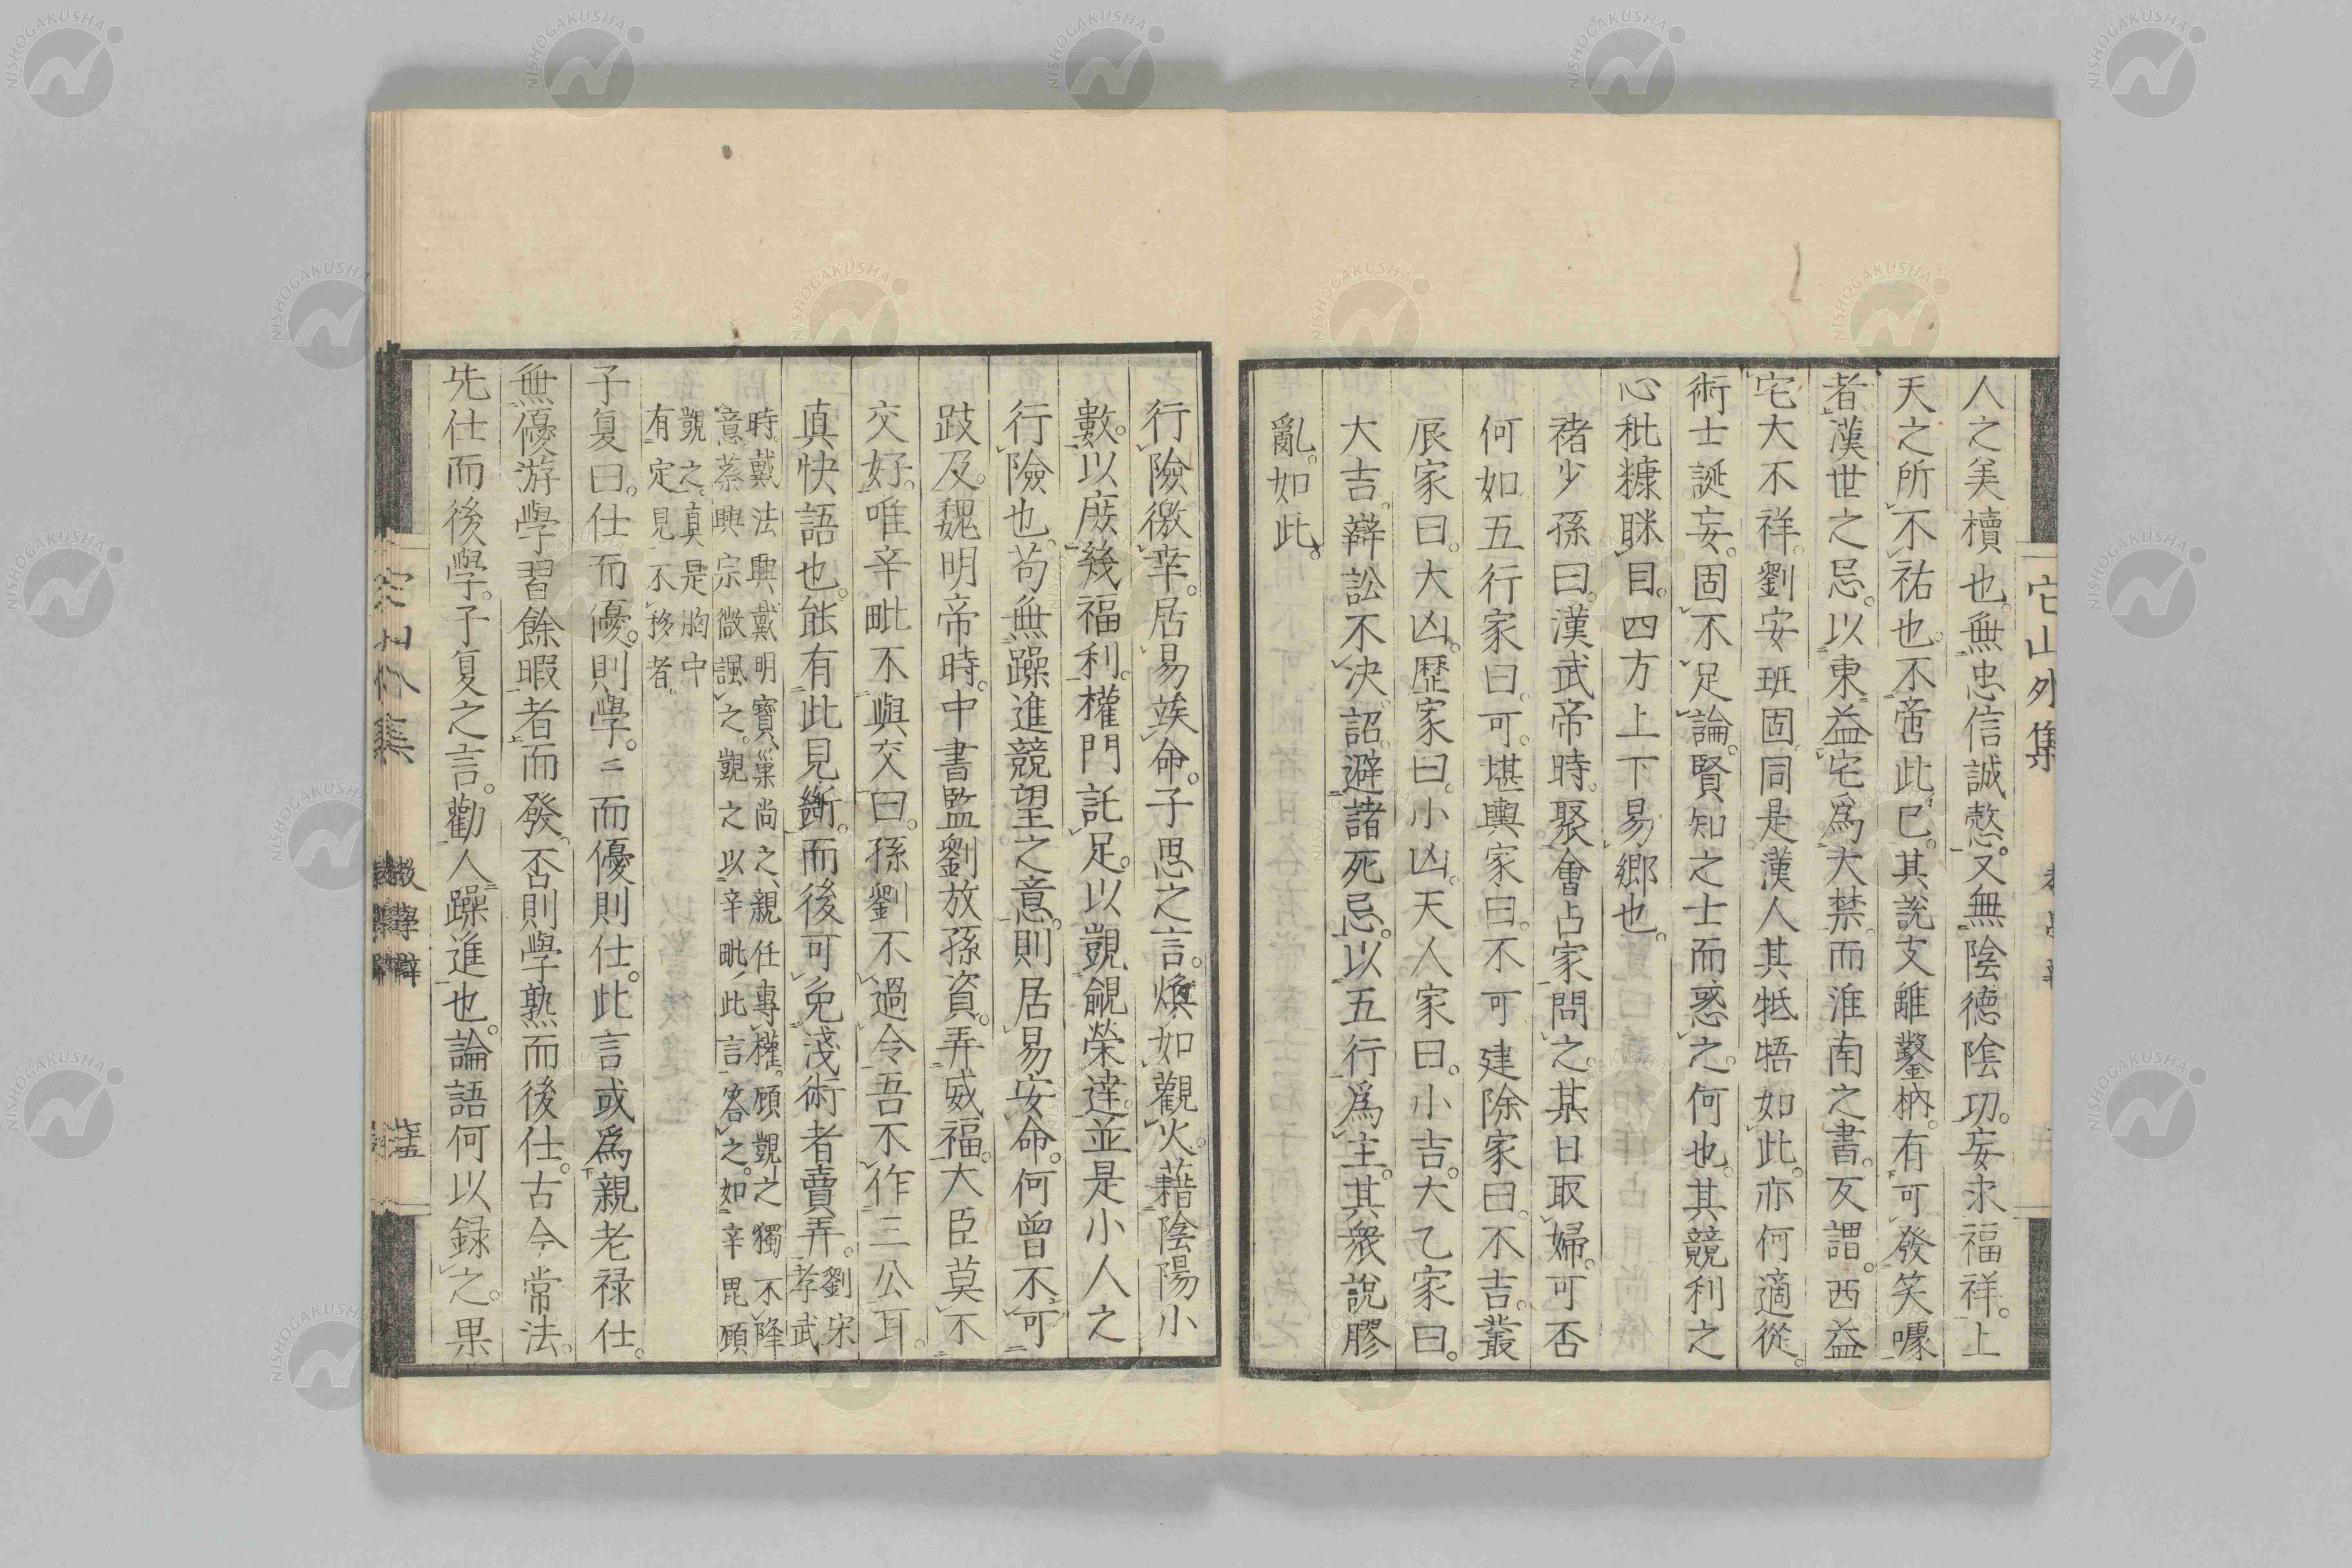 人之美櫝也。無忠信誠愨。又無陰德陰功。妄求福祥。上
天之所不祐也。不啻此已。其說支離鑿枘。有可發笑噱
者。漢世之忌。以東益宅爲大禁。而淮南之書。反謂。西益
宅大不祥。劉安班固。同是漢人。其牴牾如此。亦何適從。
術士誕妄。固不足論。賢知之士而惑之。何也。其競利之
心秕糠眯目。四方上下易鄉也。
褚少孫曰。漢武帝時。聚會占家問之。某日取婦。可否
何如。五行家曰。可。堪輿家曰。不可。建除家曰。不吉。叢
辰家曰。大凶。歷家曰。小凶。天人家曰。小吉。大乙家曰。
大吉。辯訟不決。詔避諸死忌。以五行爲主。其衆說膠
亂。如此。
行險徼幸。居易竢命。子思之言。煥如觀火。藉陰陽小
數。以庶幾福利。權門託足。以覬覦榮達。並是小人之
行險也。苟無躁進競望之意。則居易安命。何曾不可
跂及。魏明帝時。中書監劉放孫資。弄威福。大臣莫不
交好。唯辛毗不與交。曰。孫劉不過令吾不作三公耳。
真快語也。能有此見斷。而後可免淺術者賣弄。劉宋
孝武
時。戴法興戴明寶巢尚之。親任專權。顧覬之獨不降
意。蔡興宗微諷之。覬之以辛毗此言答之。如辛毘顧
覬之。真是胸中
有定見不移者。
子夏曰。仕而優。則學。學而優則仕。此言或爲親老祿仕。
無優游學習餘暇者而發。否則學熟而後仕。古今常法。
先仕而後學。子夏之言。勸人躁進也。論語何以録之。果
它山外集